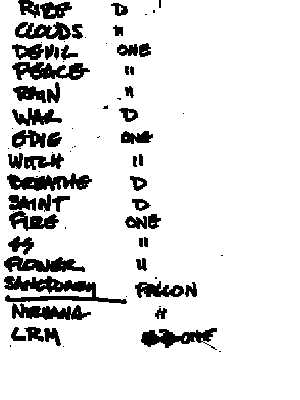 RISE D
CLOUDS "
DEVIL ONE
PEACE "
RAIN "
WAR D
EDIE ONE
WITCH "
BREATHE D
SAINT D
FIRE ONE
"
FLOWER "
SANCTUARY FALCON
NIRVANA "
LRM ONE